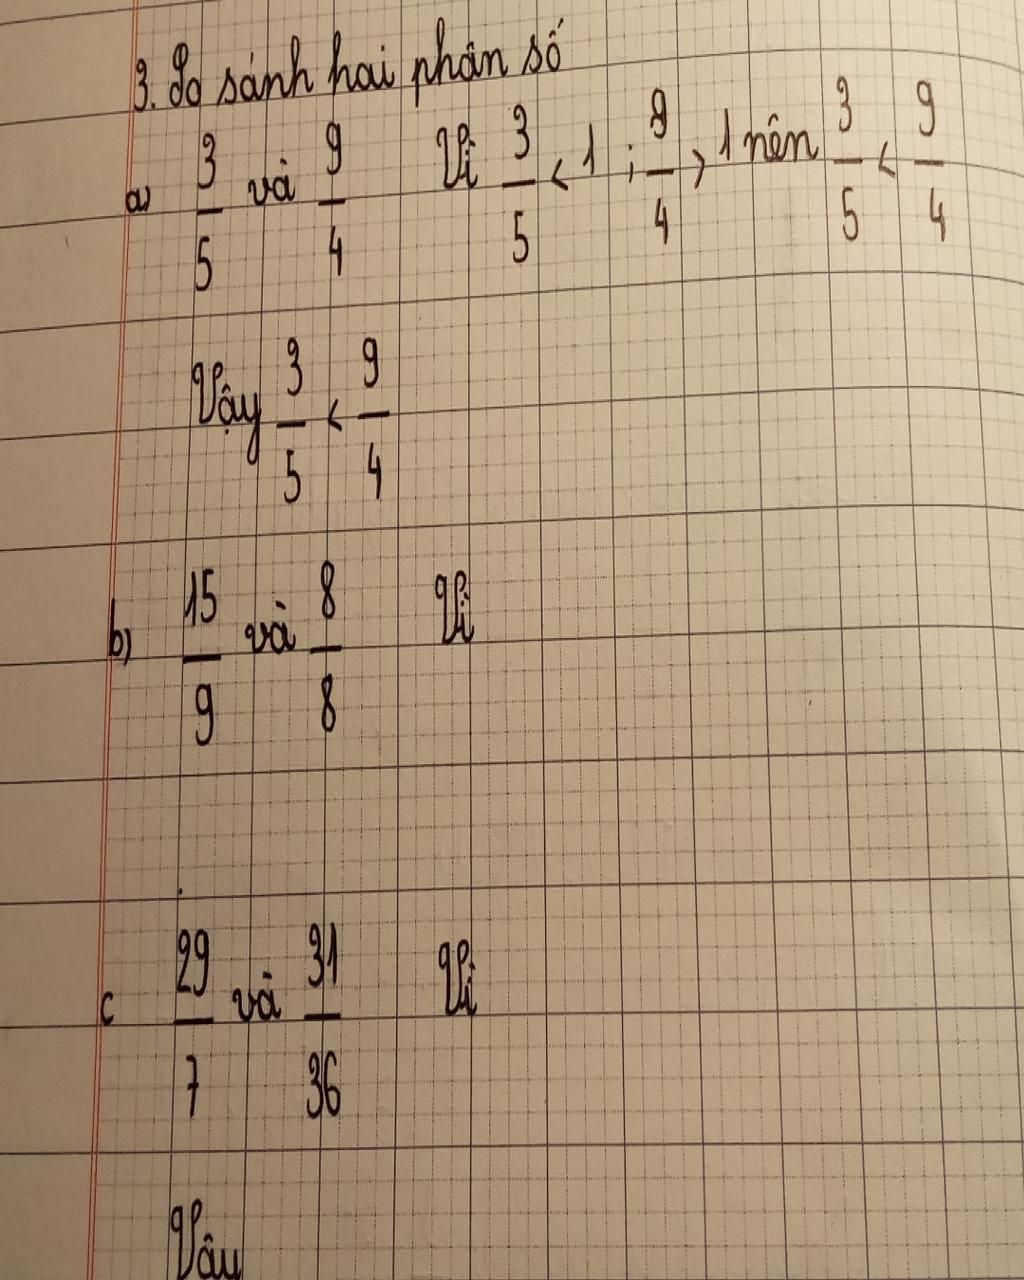 3. So sánh hai phân số
a) 3/5 và 9/4 Vì 3/5 < 1 ; 9/4 > 1 nên 3/5 < 9/4
Vậy 3/5 < 9/4
b) 15/9 và 8/8 Vì
c 29/7 và 31/36 Vì
Vậy